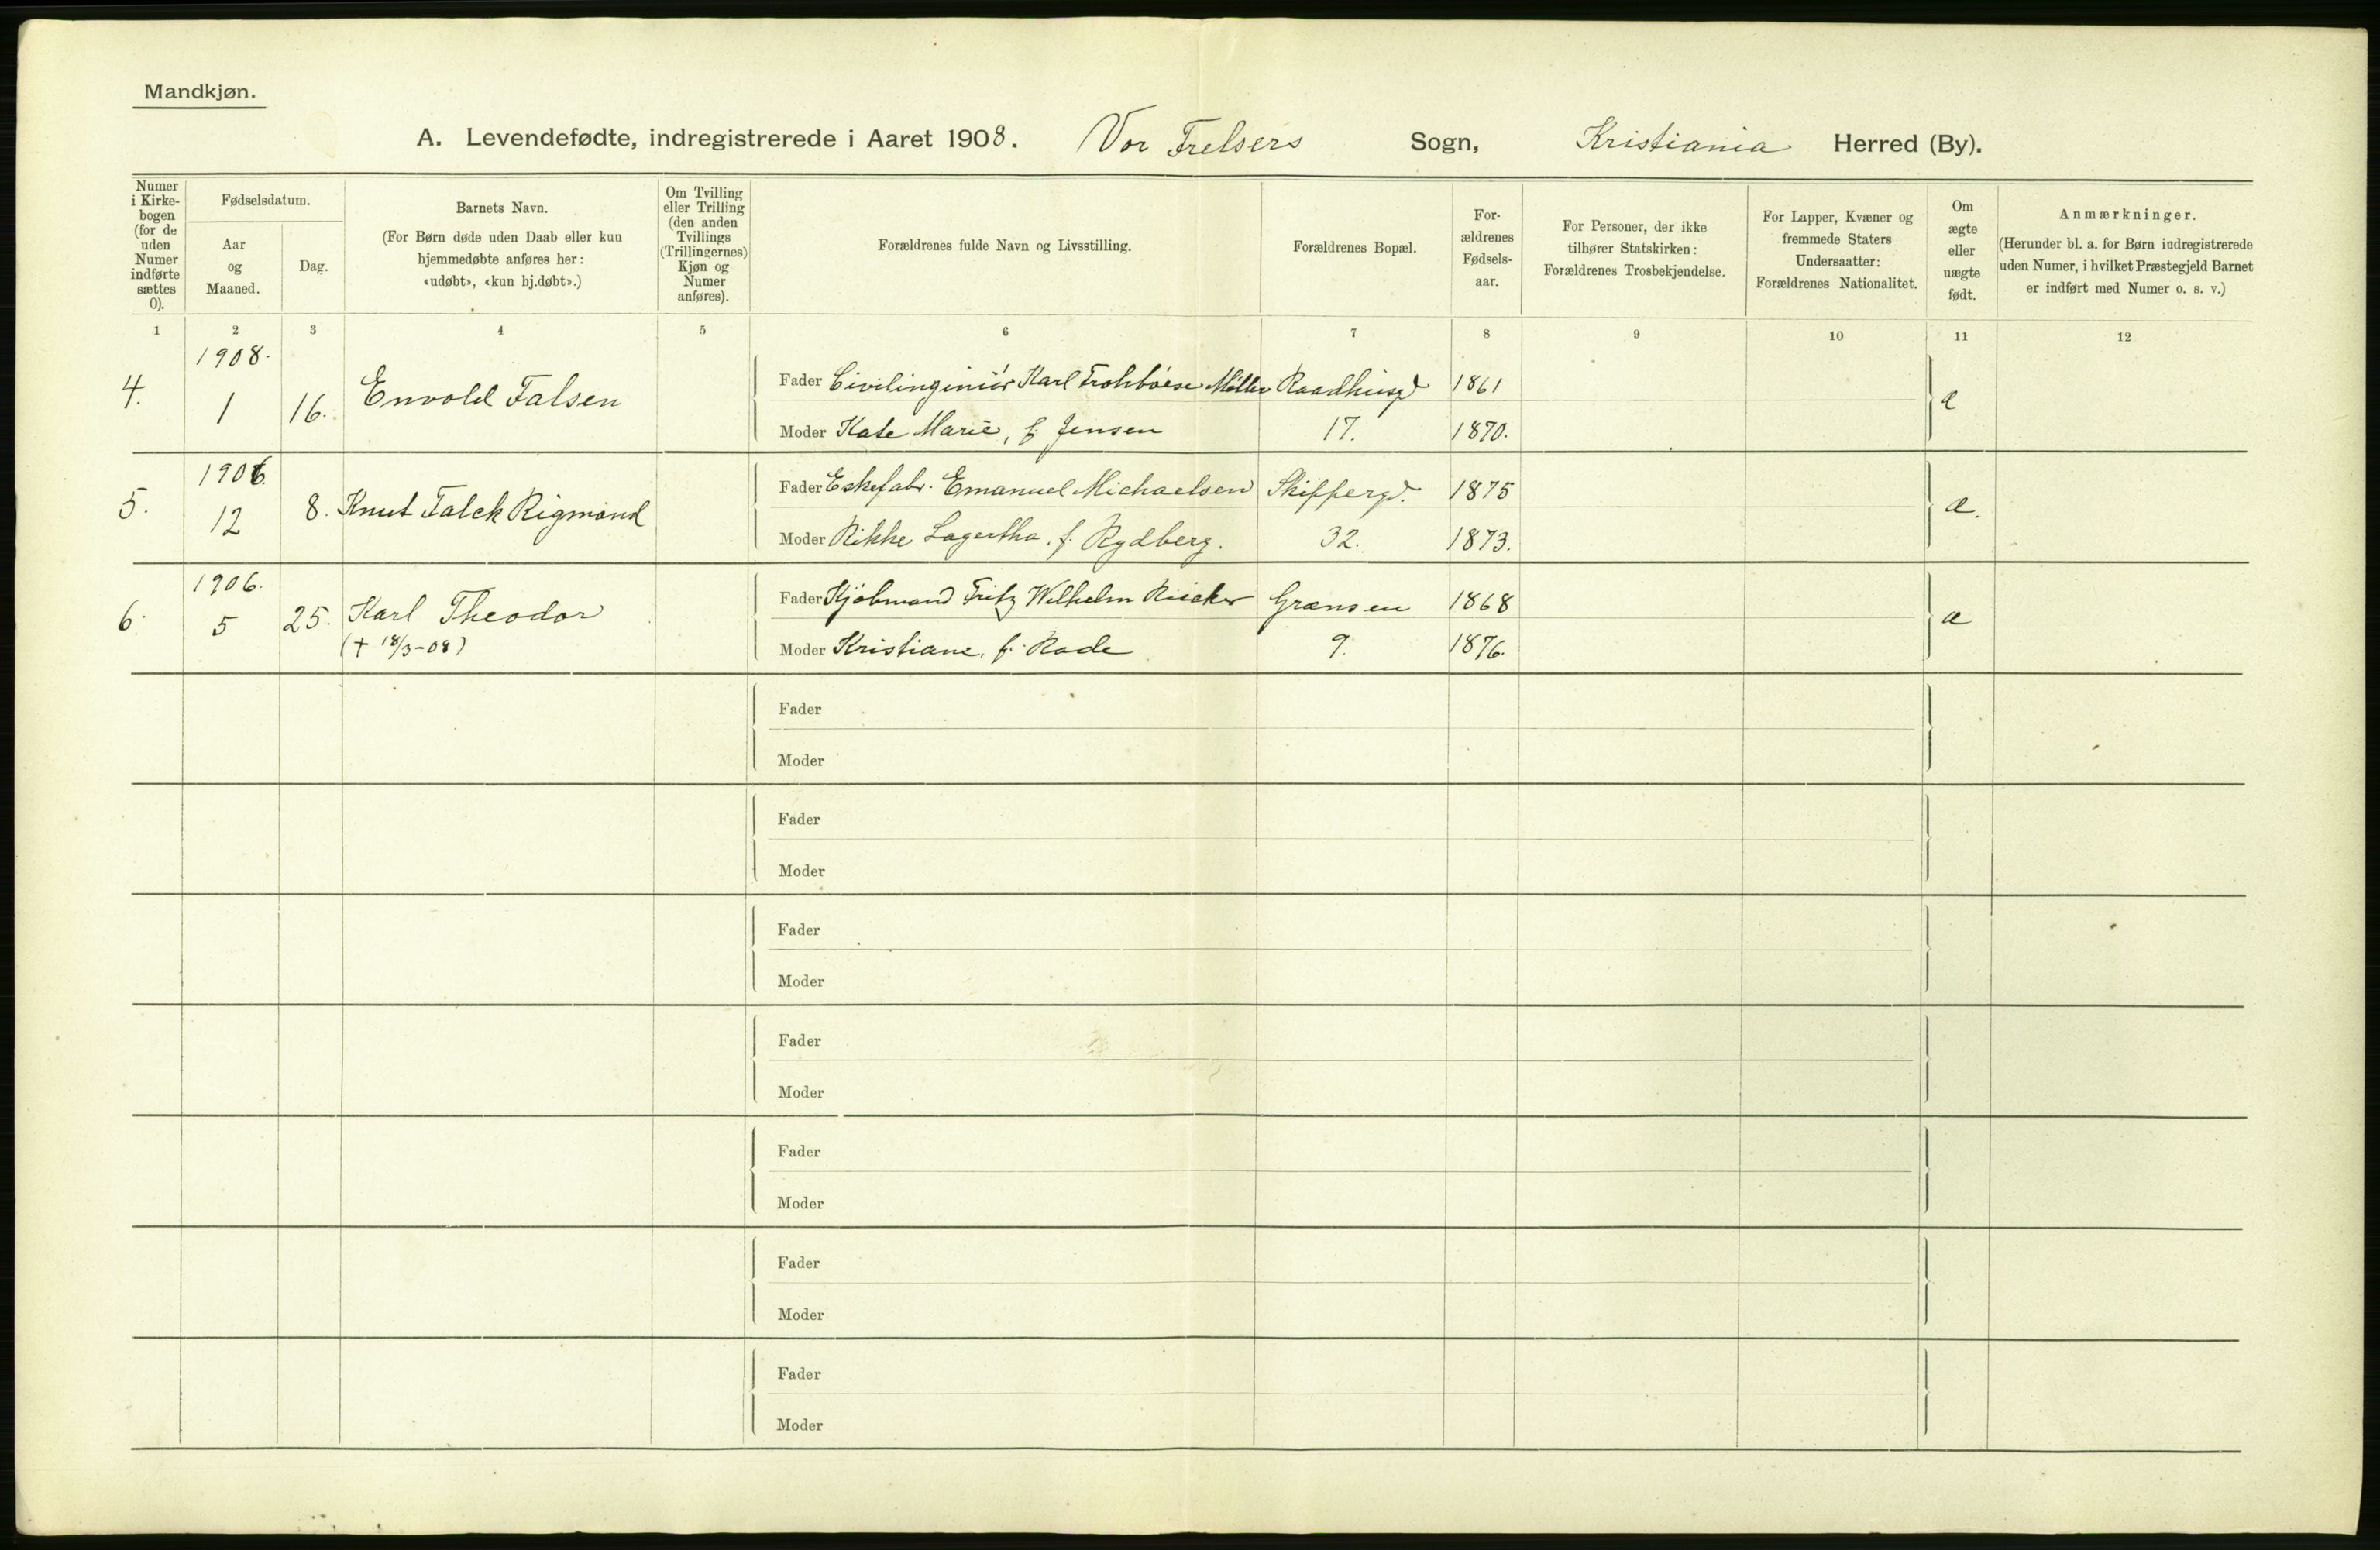 Mandkjøn.
A. Levendefødte, indregistrerede i Aaret 1908. Vor Frelsers Sogn, Kristiania Herred (By).
Numer i Kirkebogen (for de uden Numer indførte sættes 0).
Fødselsdatum.
Aar og Maaned.
Dag.
Barnets Navn.
(For Børn døde uden Daab eller kun
hjemmedøbte anføres her:
«udøbt», «kun hj.døbt».)
Om Tvilling
eller Trilling
(den anden
Tvillings
(Trillingernes)
Kjøn og
Numer
anføres).
Forældrenes fulde Navn og Livsstilling.
Forældrenes Bopæl.
For-
ældrenes
Fødsels-
aar.
For Personer, der ikke
tilhører Statskirken:
Forældrenes Trosbekjendelse.
For Lapper, Kvæner og
fremmede Staters
Undersaatter:
Forældrenes Nationalitet.
Om
ægte
eller
uægte
født.
Anmærkninger.
(Herunder bl. a. for Børn indregistrerede
uden Numer, i hvilket Præstegjeld Barnet
er indført med Numer o. s. v.)
1 2 3 4 5 6 7 8 9 10 11 12
1908.
4. 1 16. Envold Falsen
Fader Civilingeniør Karl Møller Raadhusgd 1861
æ
Moder Kate Marie, f. Jensen 17. 1870.
1906.
5. 12 8. Knut Falck Rigmond
Fader Eskefabr. Emanuel Michaelsen Skippergd. 1875
æ.
Moder Rikke Lagertha, f. Rydberg. 32. 1873.
1906.
6. 5 25. Karl Theodor
(† 18/3-08)
Fader Kjøbmand Fritz Wilhelm Grænsen 1868
æ
Moder Kristiane, f. Rode 9. 1876.
Fader
Moder
Fader
Moder
Fader
Moder
Fader
Moder
Fader
Moder
Fader
Moder
Fader
Moder